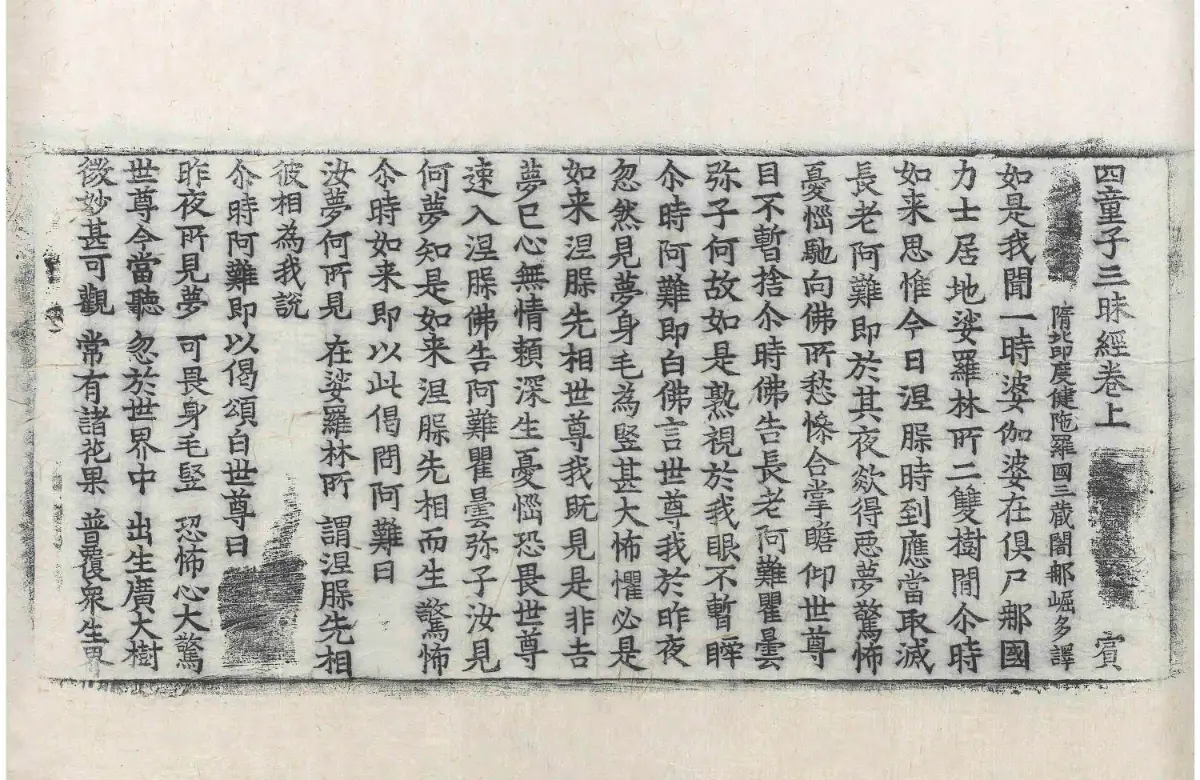 四童子三昧經卷上 賓
隋北印度健陁羅國三藏闍那崛多譯
如是我聞一時婆伽婆在俱尸那國
力士居地娑羅林所二雙樹間尒時
如来思惟今日涅槃時到應當取滅
長老阿難即於其夜欻得惡夢驚怖
憂惱馳向佛所愁慘合掌瞻仰世尊
目不暫捨尒時佛告長老阿難瞿曇
弥子何故如是熟視於我眼不暫瞬
尒時阿難即白佛言世尊我於昨夜
忽然見夢身毛為竪甚大怖懼必是
如来涅槃先相世尊我既見是非吉
夢已心無情賴深生憂惱恐畏世尊
速入涅槃佛告阿難瞿曇弥子汝見
何夢知是如来涅槃先相而生驚怖
尒時如来即以此偈問阿難曰
汝夢何所見 在娑羅林所 謂涅槃先相
彼相為我說
尒時阿難即以偈頌白世尊曰
昨夜所見夢 可畏身毛竪 恐怖心大驚
世尊今當聽 忽於世界中 出生廣大樹
微妙甚可觀 常有諸花果 普覆衆生界